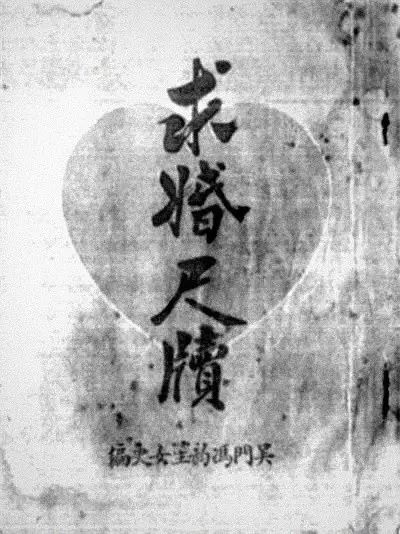 求婚尺牘
吳門馮韵笙女史編